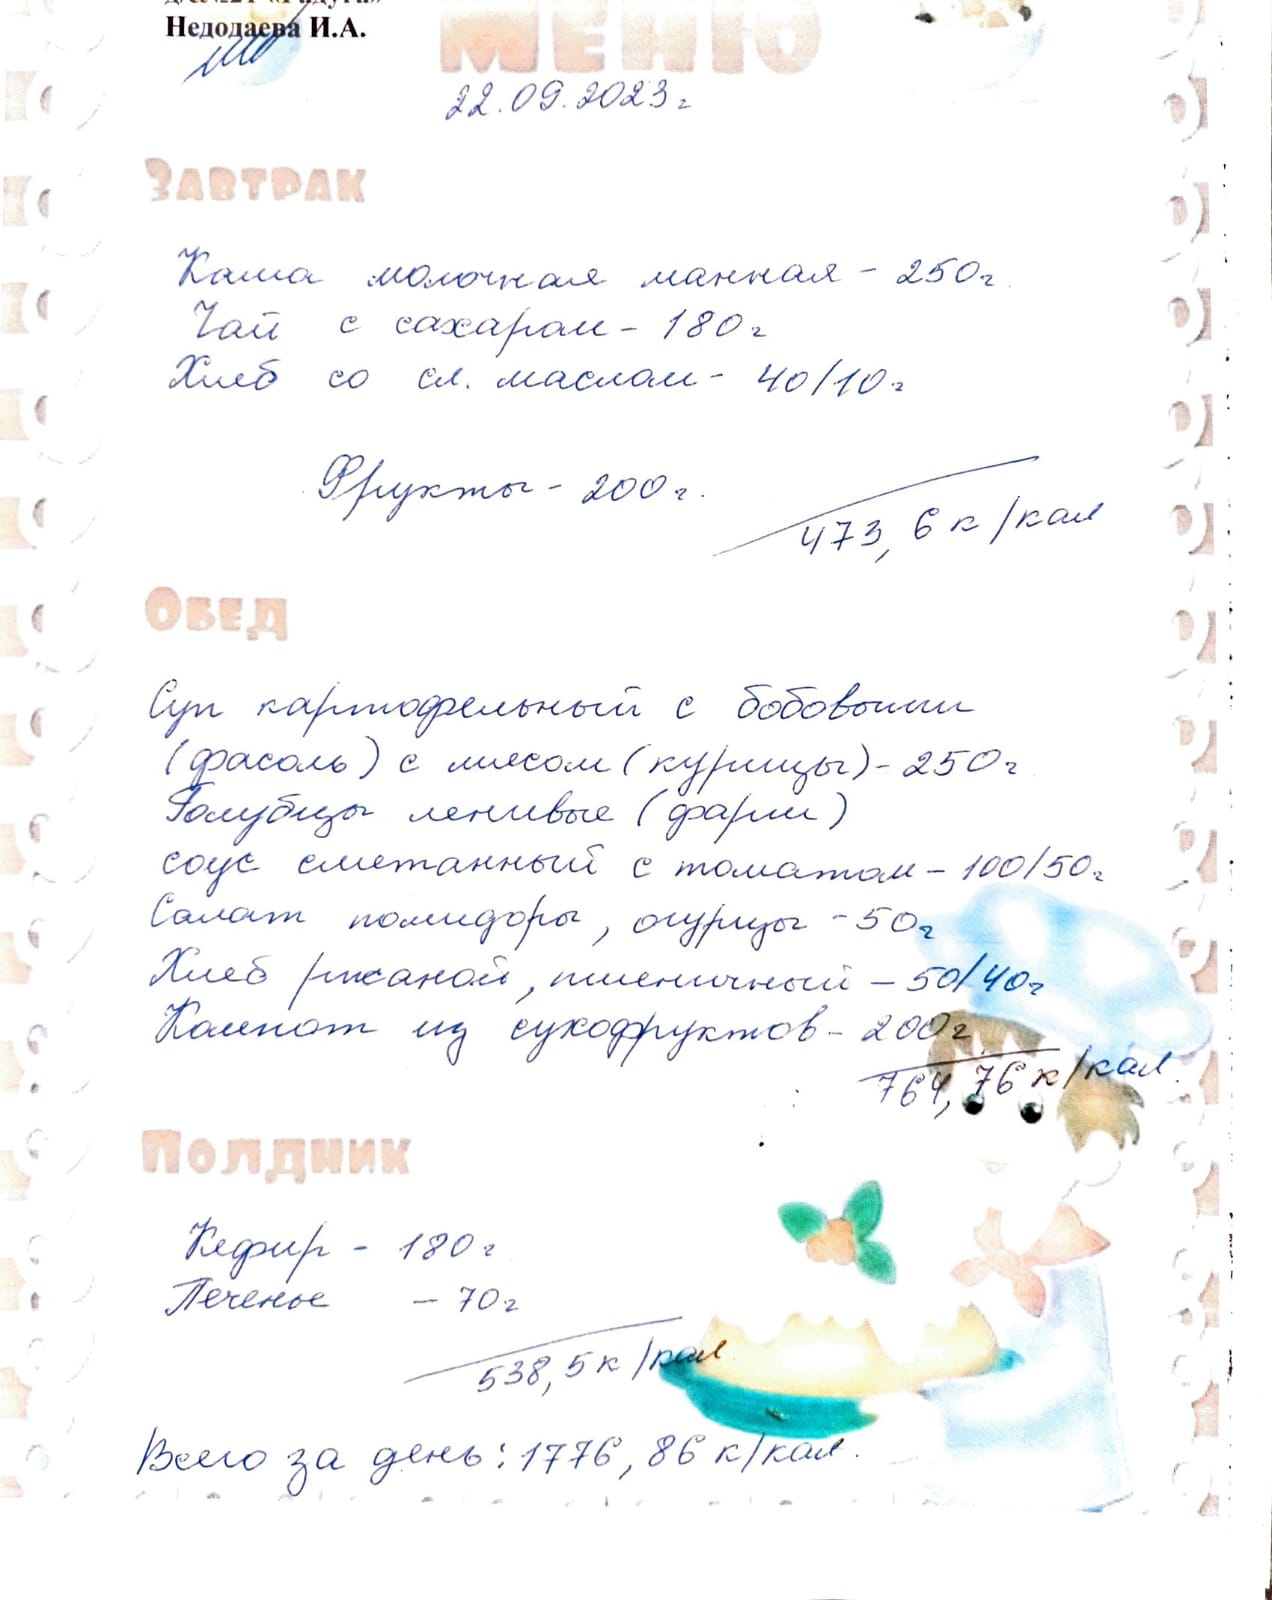 д/с №21 «Радуга»
Недодаева И.А.
МЕНЮ
22.09.2023г
Завтрак
Каша молочная манная - 250г
Чай с сахаром - 180г
Хлеб со сл. маслом - 40/10г
Фрукты - 200г.
473,6 к/кал
Обед
Суп картофельный с бобовыми
(фасоль) с мясом (курицы) - 250г
Голубцы ленивые (фарш)
соус сметанный с томатом - 100/50г
Салат помидоры, огурцы - 50г
Хлеб ржаной, пшеничный - 50/40г
Компот из сухофруктов - 200г
764,76 к/кал
Полдник
Кефир - 180г
Печенье - 70г
538,5 к/кал
Всего за день: 1776,86 к/кал.